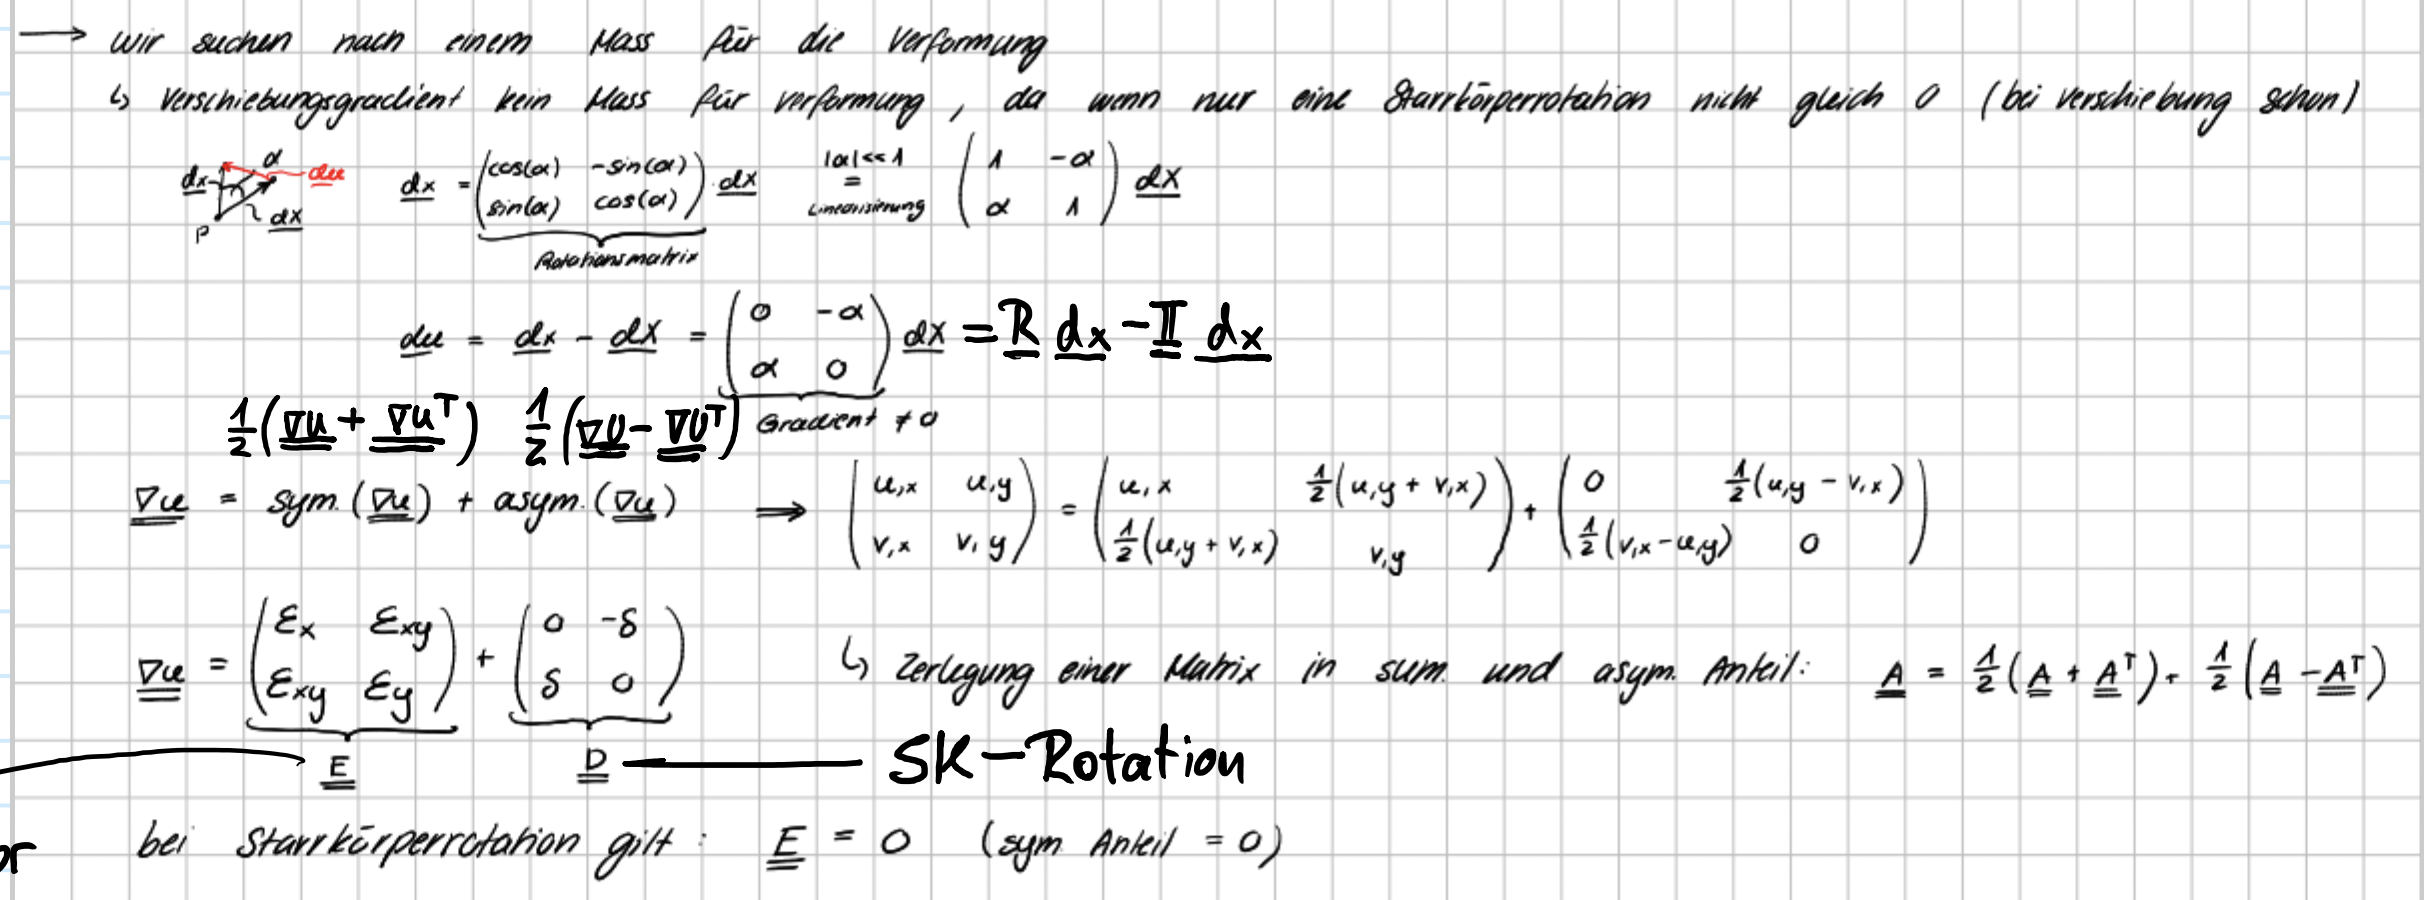 → wir suchen nach einem Mass für die Verformung
↳ Verschiebungsgradient kein Mass für verformung, da wenn nur eine Starrkörperrotation nicht gleich 0 (bei verschiebung schon)
dx α du dX P
dx = (cos(α) -sin(α) ; sin(α) cos(α)) · dX |α|<<1 = Linearisierung (1 -α ; α 1) dX
Rotationsmatrix
du = dx - dX = (0 -α ; α 0) dX = R dx - II dx
Gradient ≠ 0
½(∇u + ∇u^T) ½(∇U - ∇U^T)
∇u = sym.(∇u) + asym.(∇u) ⟹ (u,x u,y ; v,x v,y) = (u,x ½(u,y + v,x) ; ½(u,y + v,x) v,y) + (0 ½(u,y - v,x) ; ½(v,x - u,y) 0)
∇u = (εx εxy ; εxy εy) + (0 -δ ; δ 0) ↳ Zerlegung einer Matrix in sum. und asym. Anteil: A = ½(A + A^T) + ½(A - A^T)
E D — SK-Rotation
or bei Starrkörperrotation gilt: E = 0 (sym Anteil = 0)